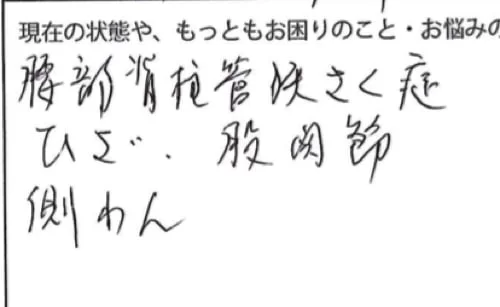 現在の状態や、もっともお困りのこと・お悩みの
腰部脊柱管狭さく症
ひざ、股関節
側わん